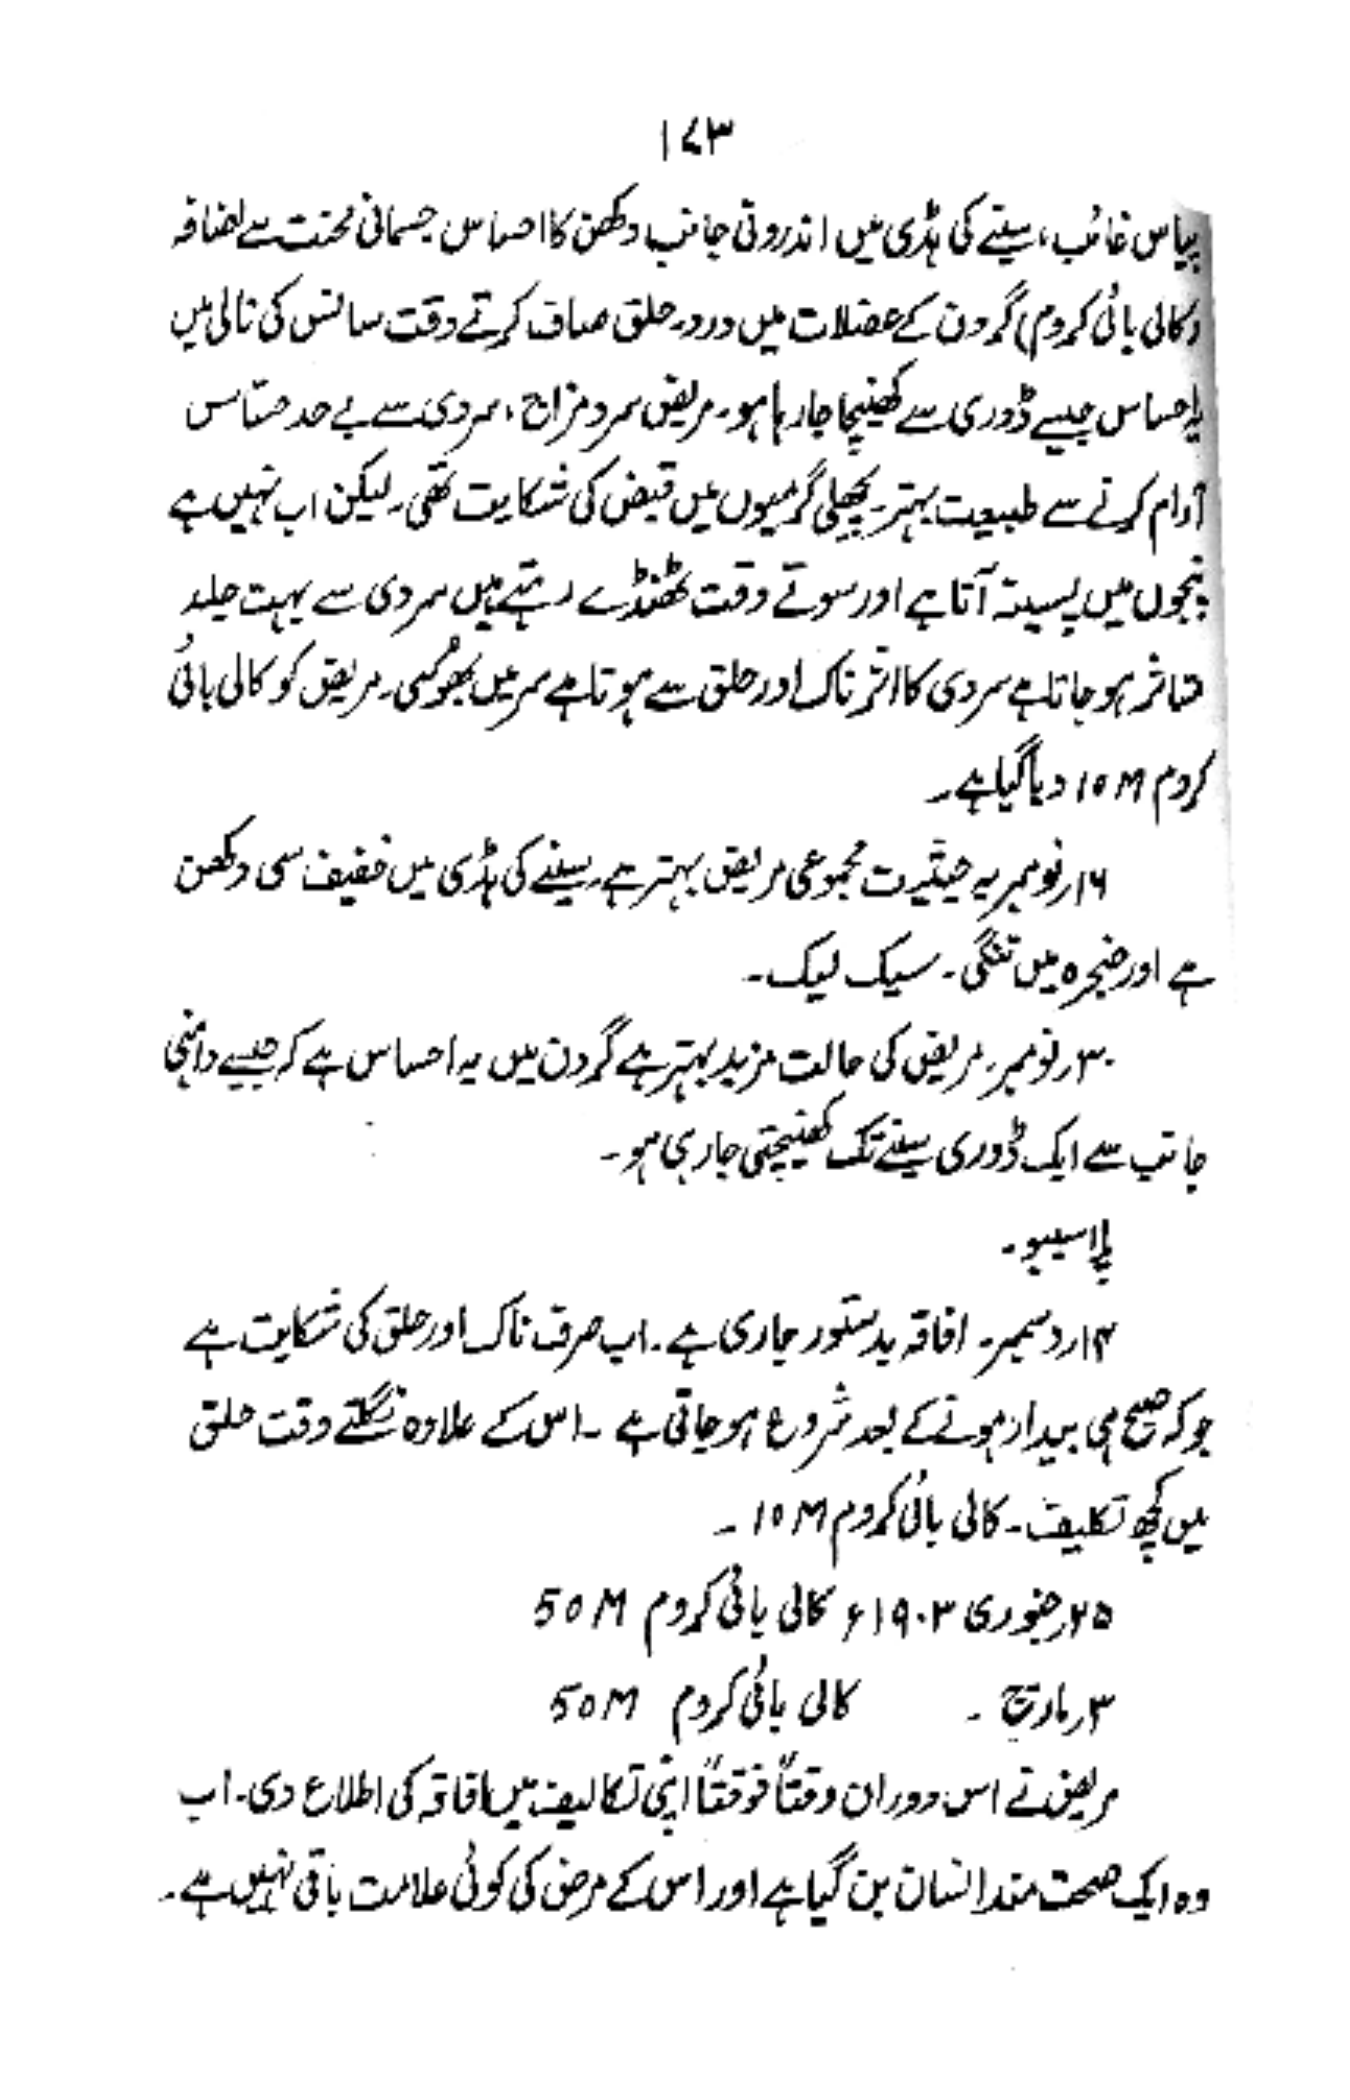 ۱۷۳
پیاس غائب، سینے کی ہڈی میں اندرونی جانب دکھن کا احساس جسمانی محنت سے اضافہ
(کالی بائی کروم) گردن کے عضلات میں درد۔ حلق صاف کرتے وقت سانس کی نالی میں
یہ احساس جیسے ڈوری سے کھینچا جا رہا ہو۔ مریض سرد مزاج، سردی سے بے حد حساس
آرام کرنے سے طبیعت بہتر۔ پچھلی گرمیوں میں قبض کی شکایت تھی۔ لیکن اب نہیں ہے
پنجوں میں پسینہ آتا ہے اور سوتے وقت ٹھنڈے رہتے ہیں سردی سے بہت جلد
متاثر ہو جاتا ہے سردی کا اثر ناک اور حلق سے ہوتا ہے سر میں بھوُسی۔ مریض کو کالی بائی
کروم 10 M دیا گیا ہے۔
۱۶ر نومبر بہ حیثیت مجموعی مریض بہتر ہے۔ سینے کی ہڈی میں خفیف سی دکھن
ہے اور حنجرہ میں تنگی۔ سیک لیک۔
۳۰ر نومبر۔ مریض کی حالت مزید بہتر ہے گردن میں یہ احساس ہے کہ جیسے داہنی
جانب سے ایک ڈوری سینے تک کھنیچتی جا رہی ہو۔
پلاسیبو۔
۱۴ر دسمبر۔ افاقہ بدستور جاری ہے۔ اب صرف ناک اور حلق کی شکایت ہے
جو کہ صبح ہی بیدار ہونے کے بعد شروع ہو جاتی ہے۔ اس کے علاوہ نگلتے وقت حلق
میں کچھ تکلیف۔ کالی بائی کروم 10 M ۔
۲۵ر جنوری ۱۹۰۳ء کالی بائی کروم 50 M
۳ر مارچ ۔ کالی بائی کروم 50 M
مریض نے اس دوران وقتاً فوقتاً اپنی تکالیف میں افاقہ کی اطلاع دی۔ اب
وہ ایک صحت مند انسان بن گیا ہے اور اس کے مرض کی کوئی علامت باقی نہیں ہے۔